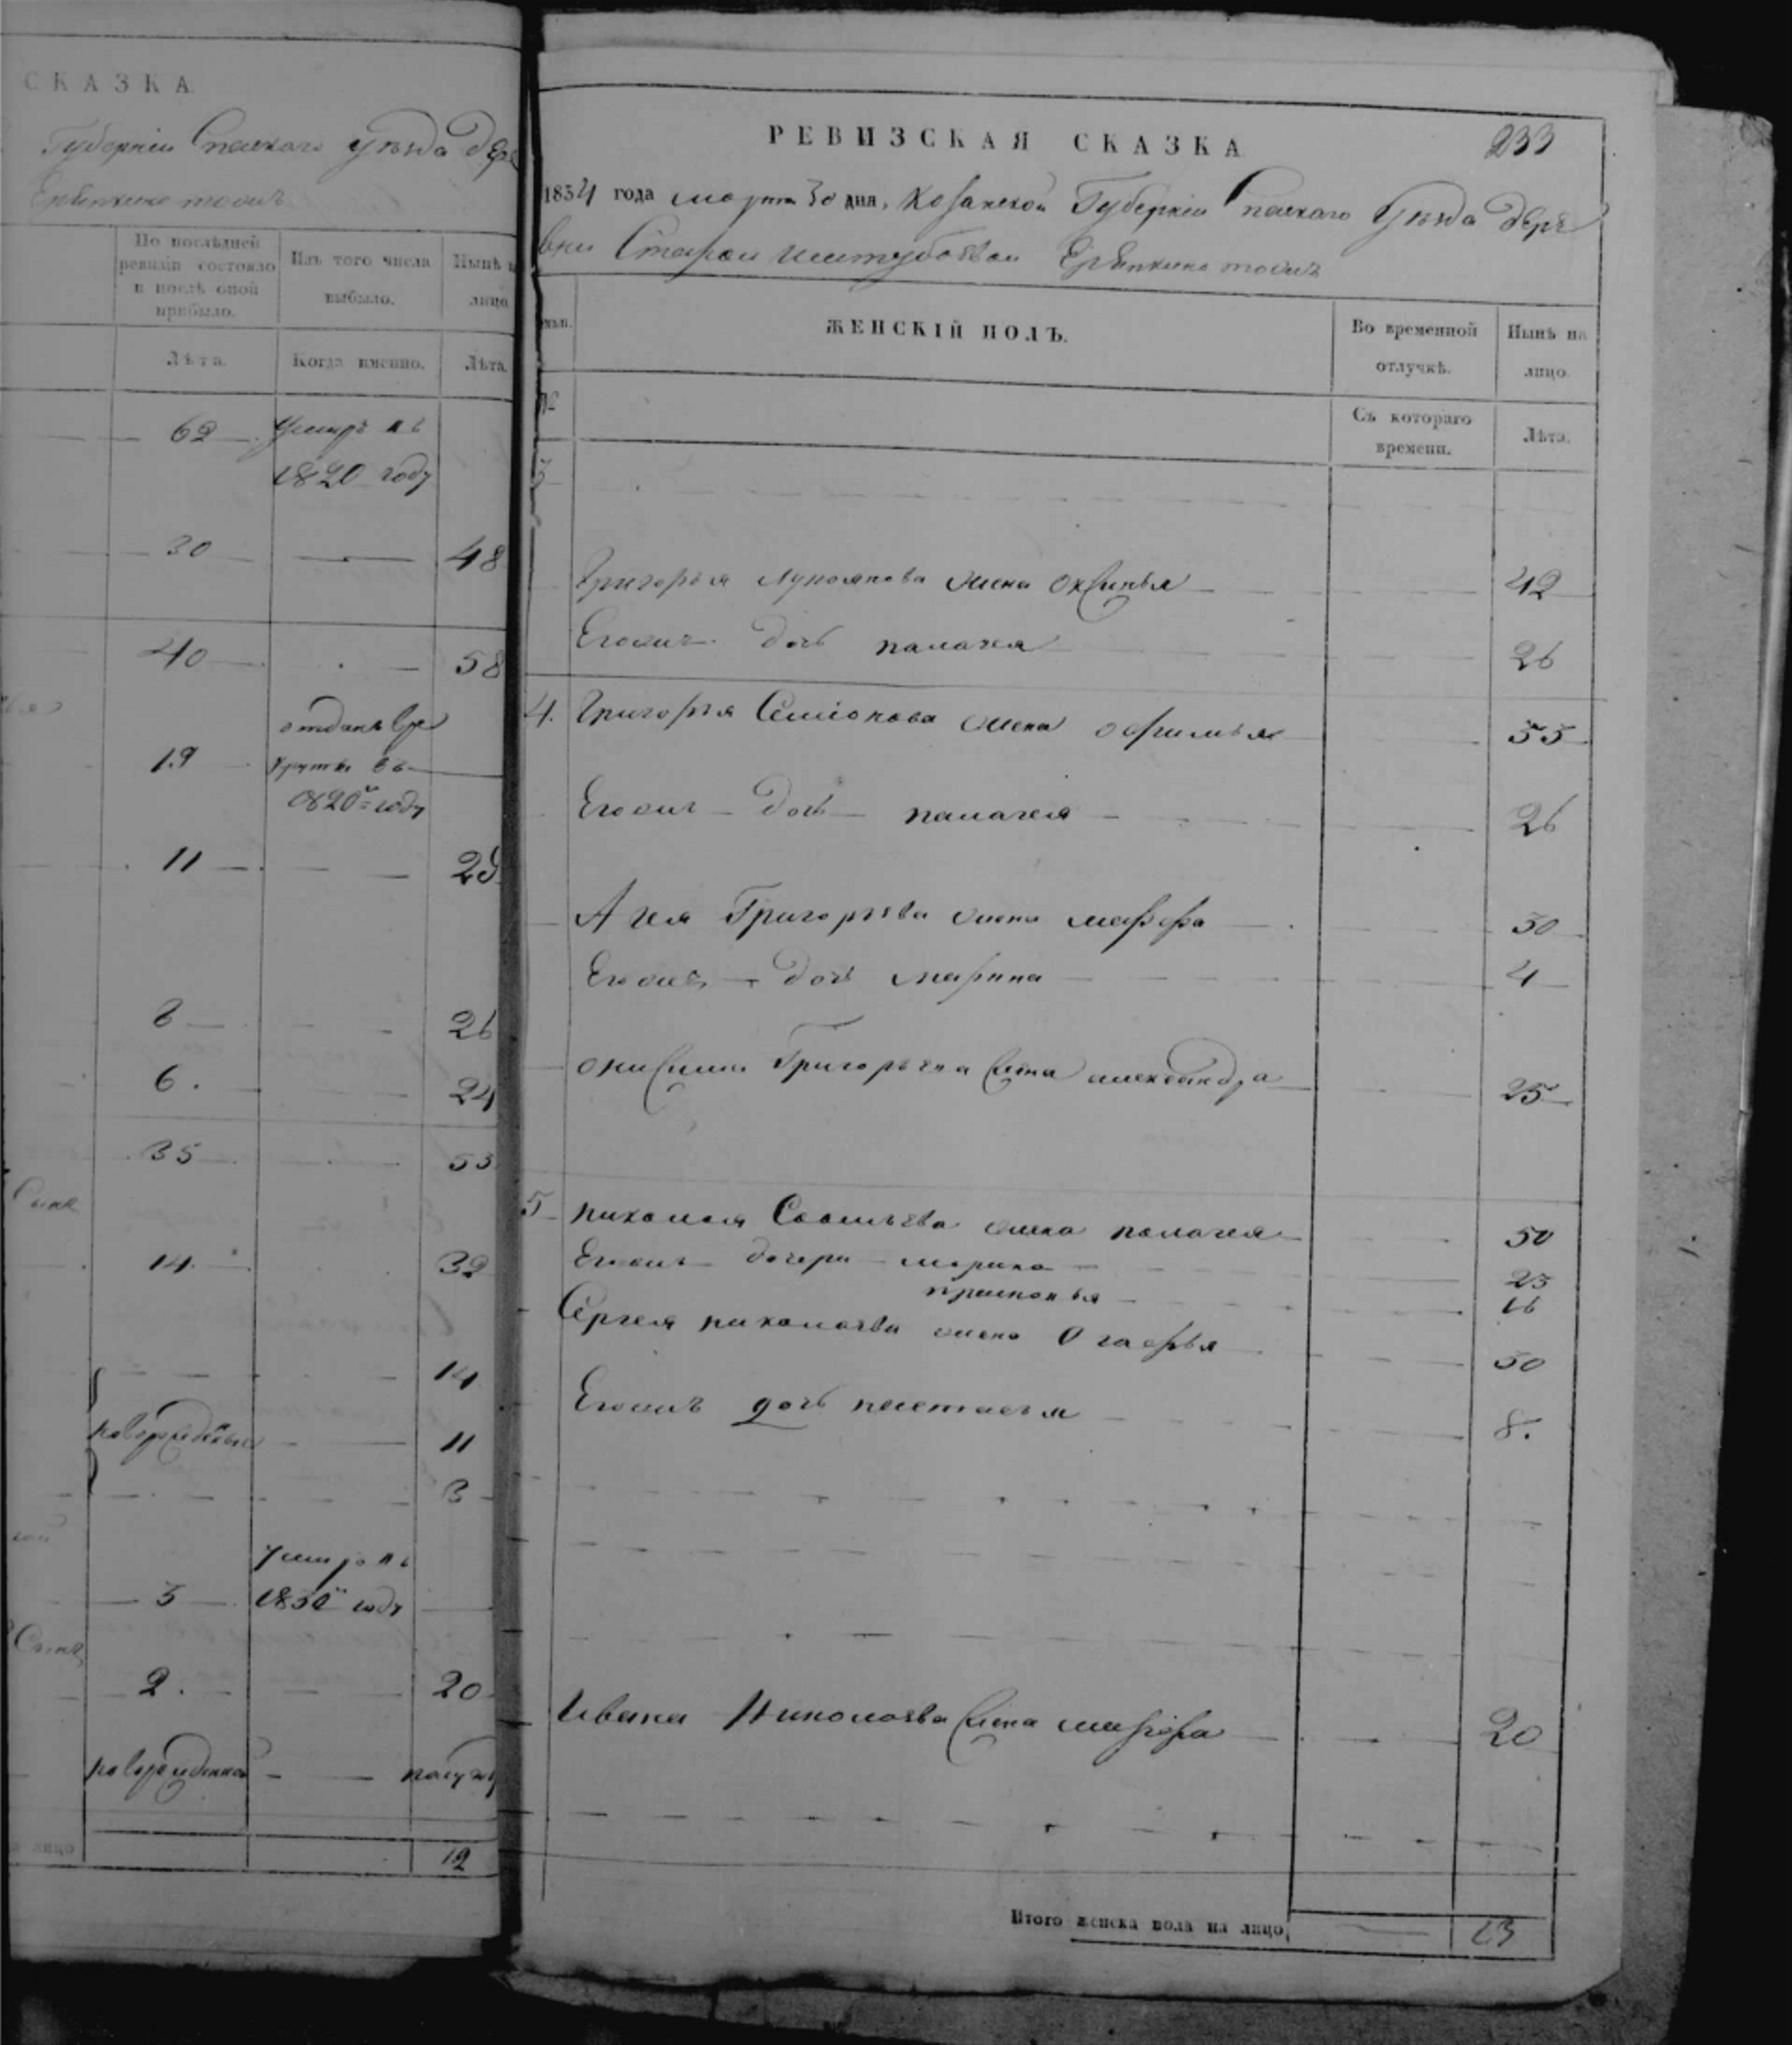 СКАЗКА
Губернiи Спаскаго уѣзда дер
Ерыпкино тожъ
По послѣдней ревизіи состояло и послѣ оной прибыло.
Изъ того числа выбыло.
Нынѣ лицо
Лѣта.
Когда именно.
Лѣта.
62 умеръ въ
1820 году
30 48
40 58
отданъ в ре
19 круты въ
1820 году
11 29
8 26
6. 24
35 53
Сынъ
14 32
14
новорожденные 11
3
умеръ въ
3 1830 году
Сынъ
2. 20
новорожденной полугоду
лицо 12
РЕВИЗСКАЯ СКАЗКА
233
1834 года марта 30 дня, Козанской Губернiи Спаскаго Уѣзда дере
вни Старой Ерыпкино тожъ
ЖЕНСКІЙ ПОЛЪ.
Во временной отлучкѣ.
Нынѣ на лицо.
№
Съ котораго времени.
Лѣта.
3
Григорья жена Оксинья 42
Егожъ дочь палагея 26
4. Григорья Семіонова жена офимья 55
Егожъ дочь палагея 26
Григорьева жена марфа 30
Егожъ дочь марина 4
онисима Григорьева жена александра 25
5 николая Савельева жена полагея 50
Егожъ дочери марина 23
прасковья 16
Сергея николаева жена Огафья 30
Егожъ дочь настасья 8.
Ивана Николаева жена марфа 20
Итого женска пола на лицо 13